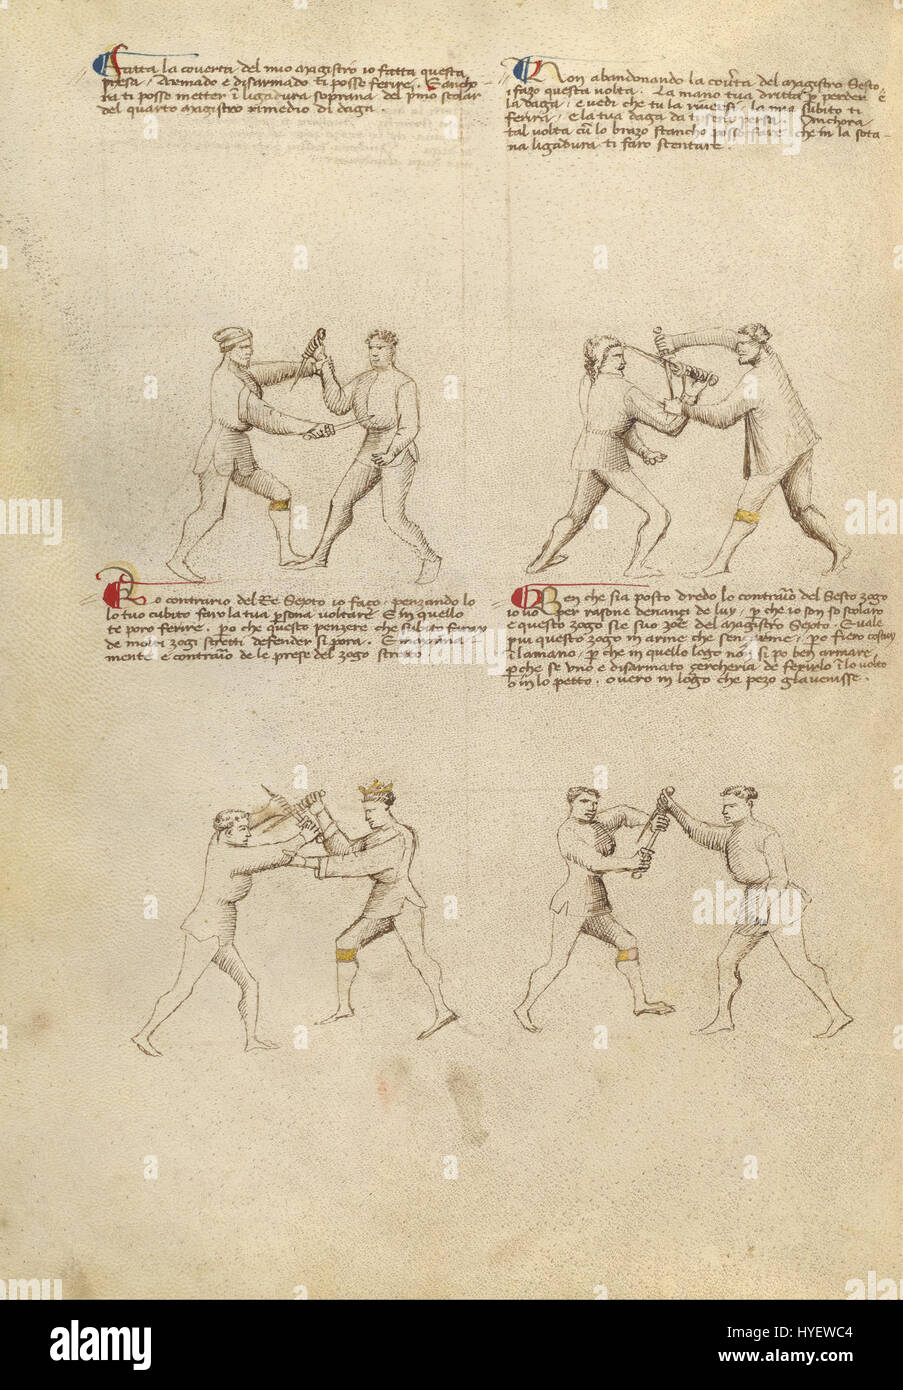 Fatta la coverta del mio magistro io fatta questa
presa. Armado e disarmado ti posso ferire. E ancho-
ra ti posso metter in ligadura soprana del primo scolar
del quarto magistro rimedio di daga.
Non abandonando la coverta del magistro Sesto
i fazo questa volta. La mano tua dritta per perder è
la daga, e vedi che tu la riversi, la mia subito ti
ferira, e la tua daga da ti sera persa. Anchora
tal volta cum lo brazo stancho posso fare che in la sota-
na ligadura ti faro stentare.
Lo contrario del Re Sexto io faço, penzando lo
lo tuo cubito faro la tua persona voltare. E in quello
te poro ferire. po che questo penzere che subito farò
de molti zogi stretti defender si pora. E
mente e contrario de le prese del zogo stretto.
Ben che sia posto dredo lo contrario del Sesto zogo
io vo per rasone denançi de luy, per che io son so scolaro
e questo zogo sie suo zoe del magistro Sexto. E vale
più questo zogo in arme che sen arme, po fiero costuy
in la mano, per che in quello logo non si po ben armare,
per che se uno e disarmato çercheria de ferirlo in lo volto
o in lo petto, overo in logo che pezo gl avenisse.
alamy
a
Image ID: HYEWC4
www.alamy.com